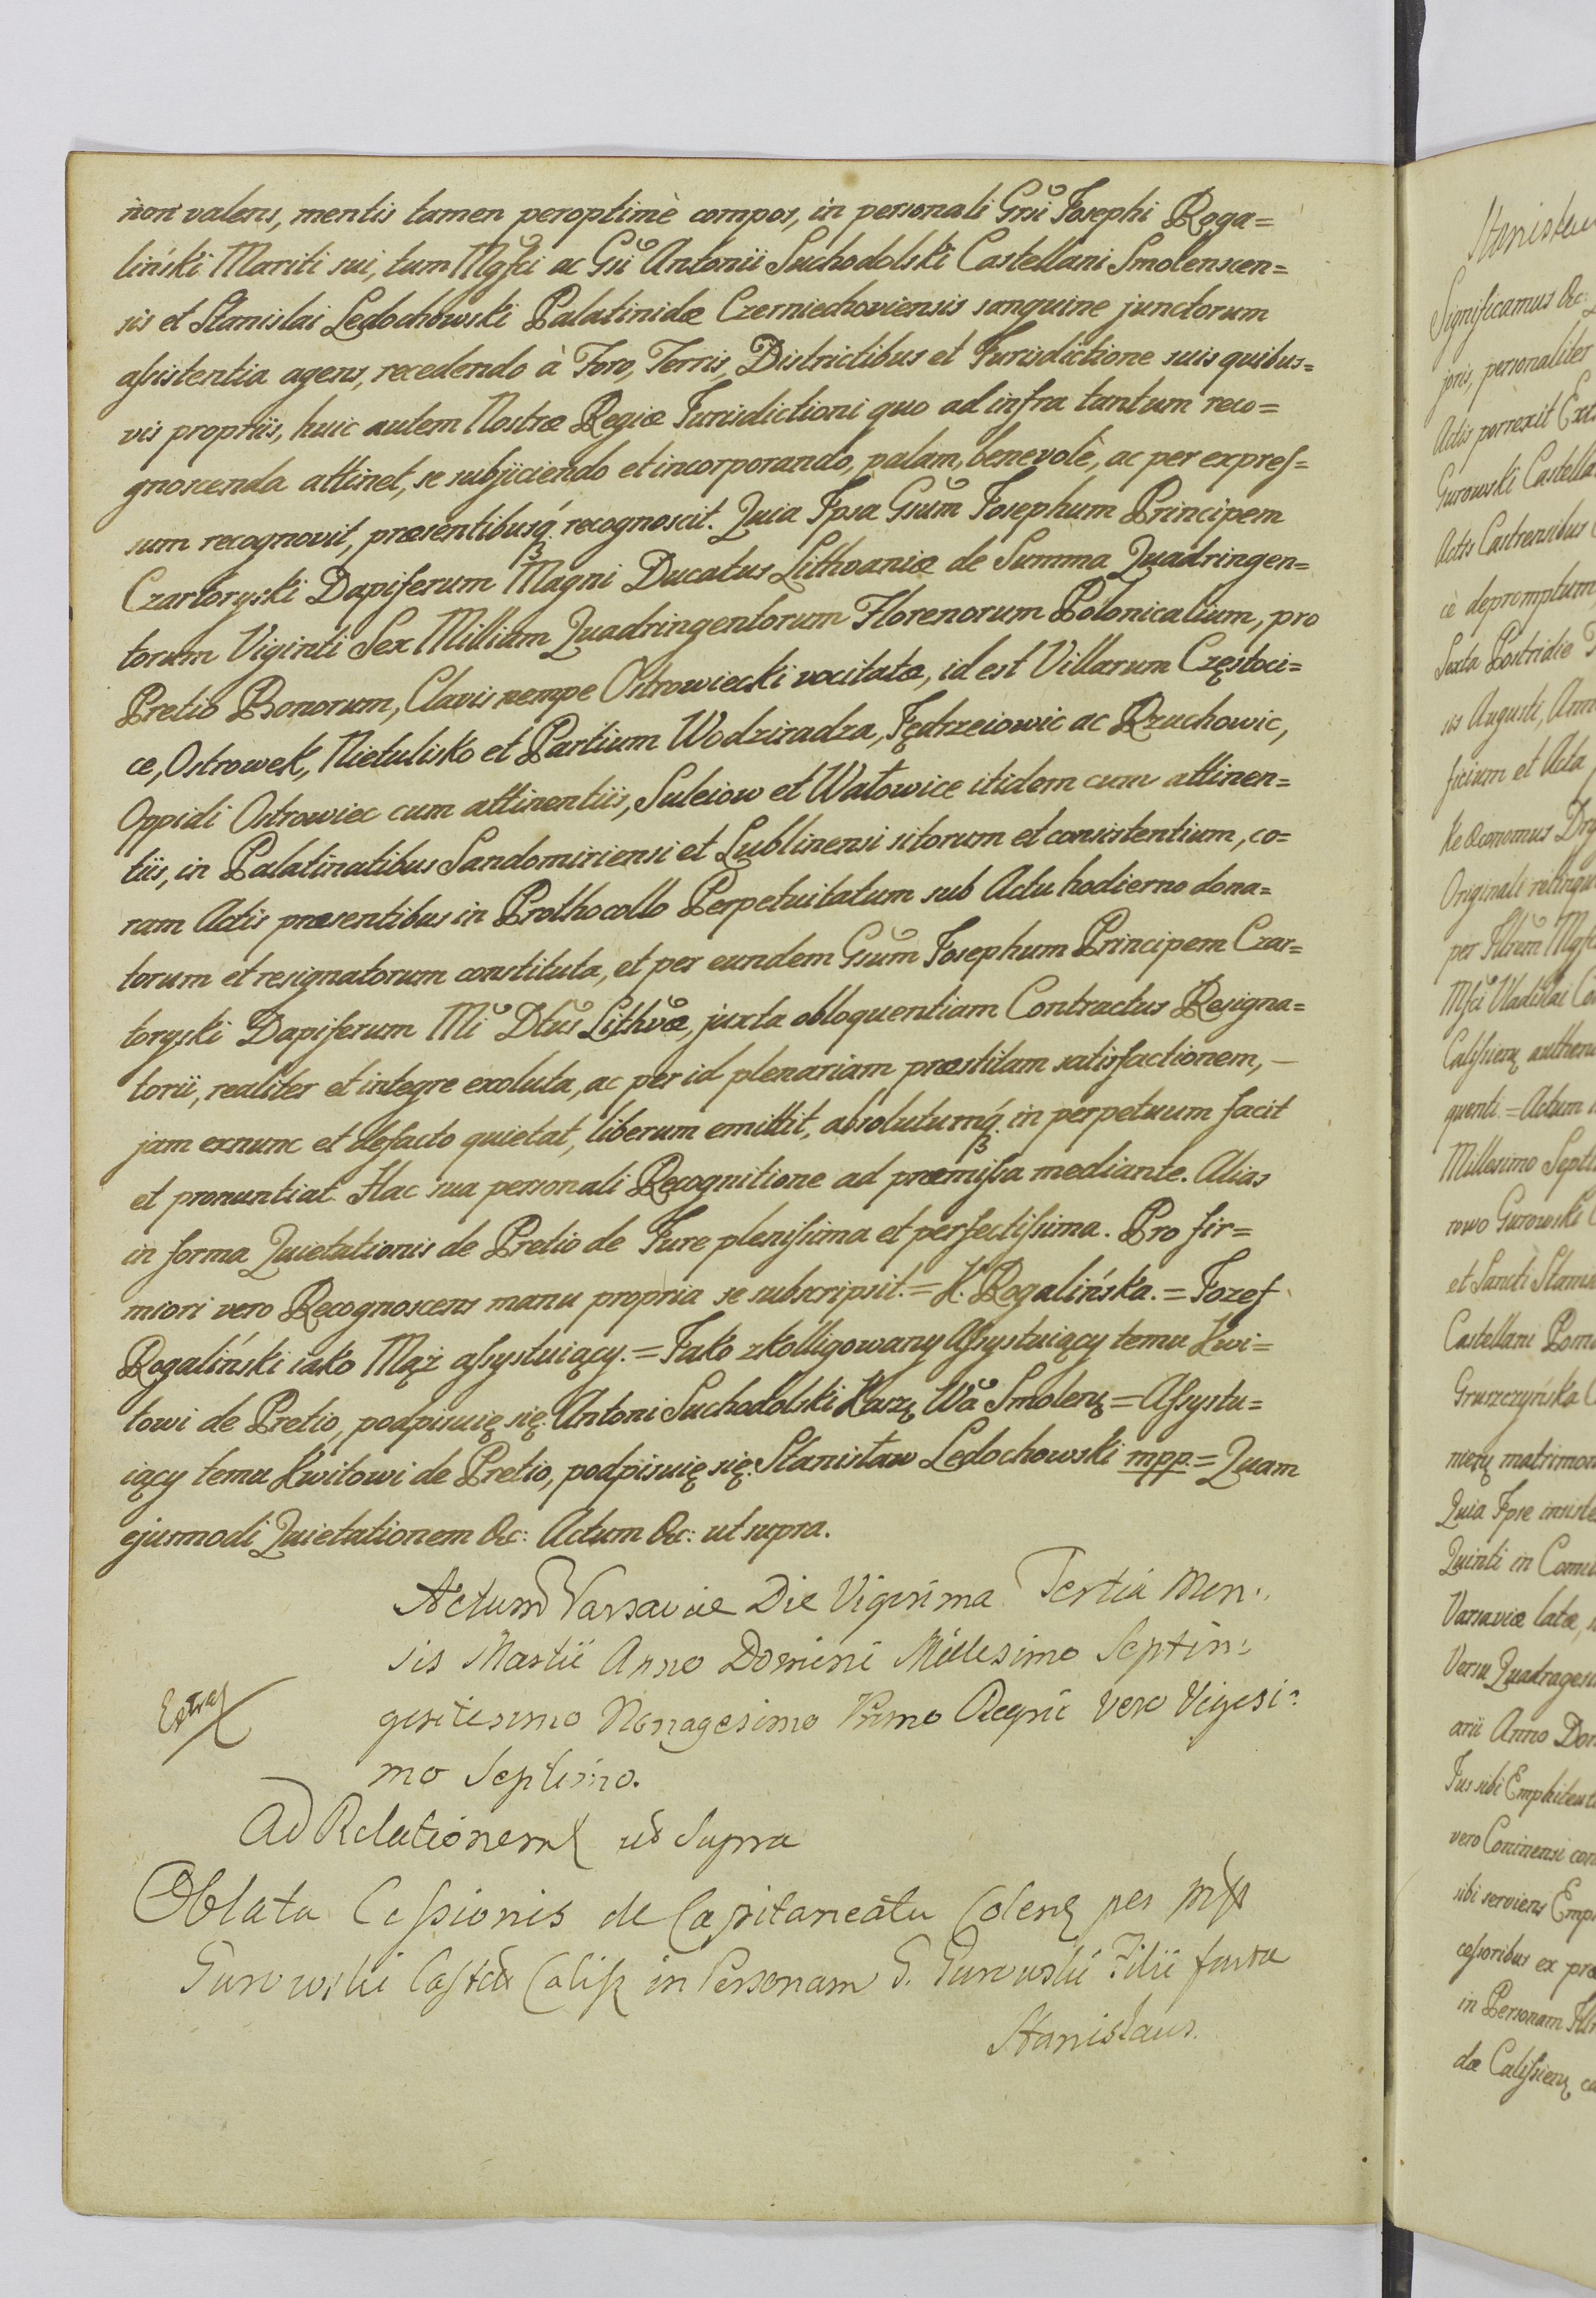 non valens, mentis tamen peroptimè compos, in personali Gnsi Josephi Roga=
liński Mariti sui, tum Mgfci ac Gsi Antonii Suchodolski Castellani Smolenscen=
sis et Stanislai Ledochowski Palatinidæ Czerniechoviensis sanguine junctorum
assistentia agens, recedendo à Foro, Terris, Districtibus et Jurisdictione suis quibus=
vis propriis, huic autem Nostræ Regiæ Jurisdictioni quo ad infra tantum reco=
gnoscenda attinet, se subjiciendo et incorporando, palam, benevolè, ac per expres=
sum recognovit, præsentibusq́ recognoscit. Quia Ipsa Gsum Josephum Principem
Czartoryski Dapiferum Magni Ducatus Lithvaniæ de Summa Quadringen=
torum Viginti Sex Millium Quadringentorum Florenorum Polonicalium, pro
Pretio Bonorum, Clavis nempe Ostrowiecki vocitatæ, id est Villarum Częstoci=
ce, Ostrowek, Nietulisko et Partium Wodziradza, Jędrzeiowic ac Rzuchowic,
Oppidi Ostrowiec cum attinentiis, Suleiow et Wałowice itidem cum attinen=
tiis, in Palatinatibus Sandomiriensi et Lublinensi sitorum et consistentium, co=
ram Actis præsentibus in Prothocollo Perpetuitatum sub Actu hodierno dona=
torum et resignatorum constituta, et per eundem Gsum Josephum Principem Czar=
toryski Dapiferum Mi Dtus Lithvæ, juxta obloquentiam Contractus Resigna=
torii, realiter et integre exoluta, ac per id plenariam præstitam satisfactionem, —
jam exnunc et defacto quietat, liberum emittit, absolutumq́ in perpetuum facit
et pronuntiat Hac sua personali Recognitione ad præmissa mediante. Alias
in forma Quietationis de Pretio de Jure plenissima et perfectissima. Pro fir=
miori vero Recognoscens manu propria se subscripsit. = K. Rogalińska. = Jozef
Rogaliński iako Mąż assystuiący. = Jako zkolligowany Assystuiący temu Kwi=
towi de Pretio, podpisuię się. Antoni Suchodolski Kasz Wa Smolen = Assystu=
iący temu Kwitowi de Pretio, podpisuię się. Stanisław Ledochowski mpp. = Quam
ejusmodi Quietationem &c: Actum &c: ut supra.
Actum Varsaviæ Die Vigesima Tertia Men:
sis Martii Anno Domini Millesimo Septin:
gentesimo Nonagesimo Primo Regni vero Vigesi:
Extra
mo Septimo.
Ad Relationem ut Supra
Oblata Cessionis de Capitaneatu Colen per
Gurowski Cast Calis in Personam G. Gurowski Filii facta
Stanislaus.
Stanislaus
Significamus &c:
joris, personaliter
Actis porrexit
Gurowski Castella
Actis Castrensibus
cè depromptum
Sexta Postridie
sis Augusti, Anno
ficium et Acta
Originali relinqu
per
Vladislai
authen
quenti = Actum
Millesimo Septi
rowo Gurowski
et Sancti Stanis
Castellani
Gruszczyńska
matrimon
Quia Ipse
Quinti in
Varsaviæ latæ,
Versu Quadrages
arii Anno Dom
Jus sibi Emphiteut
vero Coninensi con
sibi serviens Emp
cessoribus ex præ
in Personam
dæ Calissien